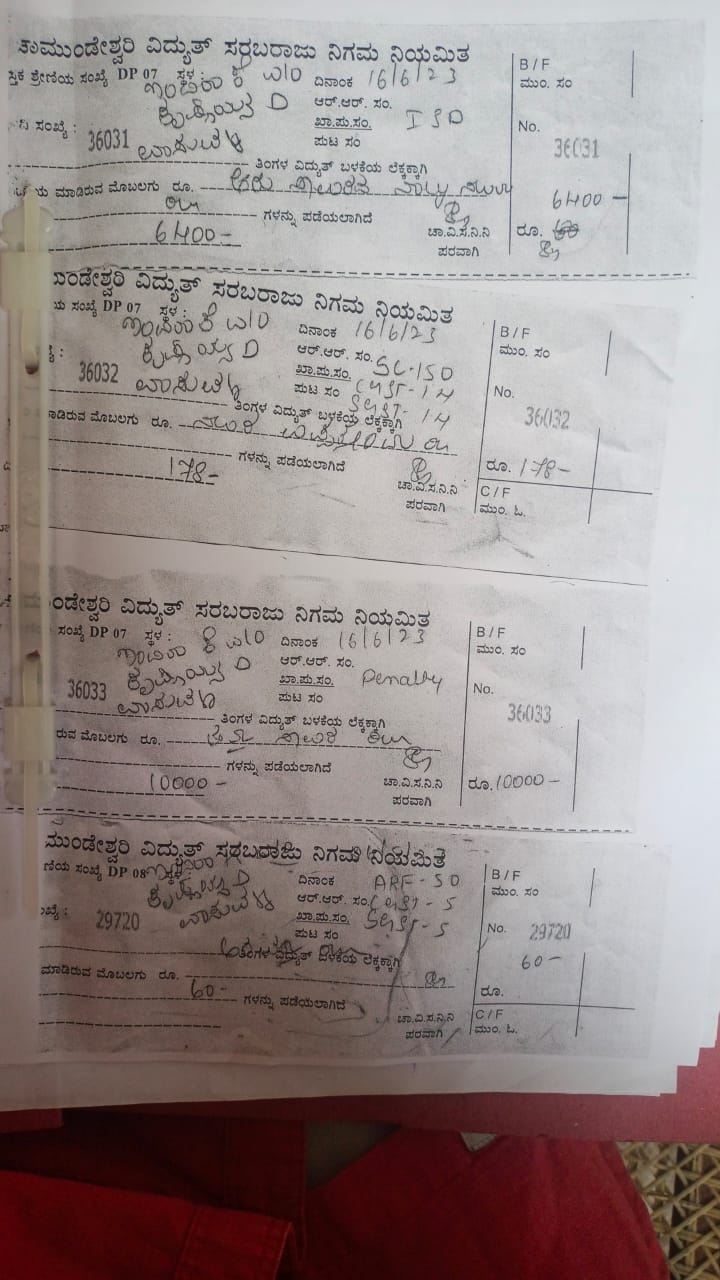 ಚಾಮುಂಡೇಶ್ವರಿ ವಿದ್ಯುತ್ ಸರಬರಾಜು ನಿಗಮ ನಿಯಮಿತ
ಸ್ತಕ ಶ್ರೇಣಿಯ ಸಂಖ್ಯೆ DP 07 ಸ್ಥಳ : W/O ದಿನಾಂಕ 16/6/23
D ಆರ್.ಆರ್. ಸಂ.
ಖಾ.ಪು.ಸಂ. ISD
ಸಂಖ್ಯೆ : 36031 ಪುಟ ಸಂ
ತಿಂಗಳ ವಿದ್ಯುತ್ ಬಳಕೆಯ ಲೆಕ್ಕಕ್ಕಾಗಿ
ಯ ಮಾಡಿರುವ ಮೊಬಲಗು ರೂ. ಆರು ಸಾವಿರದ ನಾಲ್ಕು ನೂರು
ರೂ ಗಳನ್ನು ಪಡೆಯಲಾಗಿದೆ
6400- ಚಾ.ವಿ.ಸ.ನಿ.ನಿ
ಪರವಾಗಿ
B/F
ಮುಂ. ಸಂ
No.
36031
6400-
ರೂ.
ಮುಂಡೇಶ್ವರಿ ವಿದ್ಯುತ್ ಸರಬರಾಜು ನಿಗಮ ನಿಯಮಿತ
ಯ ಸಂಖ್ಯೆ DP 07 ಸ್ಥಳ : W/O ದಿನಾಂಕ 16/6/23
D ಆರ್.ಆರ್. ಸಂ. SC-150
ಖಾ.ಪು.ಸಂ. CGST-14
36032 ಪುಟ ಸಂ SGST-14
ತಿಂಗಳ ವಿದ್ಯುತ್ ಬಳಕೆಯ ಲೆಕ್ಕಕ್ಕಾಗಿ
ಮಾಡಿರುವ ಮೊಬಲಗು ರೂ. ನೂರ ಎಪ್ಪತ್ತೆಂಟು ರೂ
ಗಳನ್ನು ಪಡೆಯಲಾಗಿದೆ
178- ಚಾ.ವಿ.ಸ.ನಿ.ನಿ
ಪರವಾಗಿ
B/F
ಮುಂ. ಸಂ
No.
36032
ರೂ. 178-
C/F
ಮುಂ. ಓ.
ಮುಂಡೇಶ್ವರಿ ವಿದ್ಯುತ್ ಸರಬರಾಜು ನಿಗಮ ನಿಯಮಿತ
ಸಂಖ್ಯೆ DP 07 ಸ್ಥಳ : W/O ದಿನಾಂಕ 16/6/23
D ಆರ್.ಆರ್. ಸಂ.
ಖಾ.ಪು.ಸಂ. Penalty
36033 ಪುಟ ಸಂ
ತಿಂಗಳ ವಿದ್ಯುತ್ ಬಳಕೆಯ ಲೆಕ್ಕಕ್ಕಾಗಿ
ರುವ ಮೊಬಲಗು ರೂ. ಹತ್ತು ಸಾವಿರ ರೂ
ಗಳನ್ನು ಪಡೆಯಲಾಗಿದೆ
10000- ಚಾ.ವಿ.ಸ.ನಿ.ನಿ
ಪರವಾಗಿ
B/F
ಮುಂ. ಸಂ
No.
36033
ರೂ. 10000-
ಮುಂಡೇಶ್ವರಿ ವಿದ್ಯುತ್ ಸರಬರಾಜು ನಿಗಮ ನಿಯಮಿತ
ಣಿಯ ಸಂಖ್ಯೆ DP 08 ದಿನಾಂಕ ARF-50
D ಆರ್.ಆರ್. ಸಂ. CGST-5
ಖಾ.ಪು.ಸಂ. SGST-5
29720 ಪುಟ ಸಂ
ತಿಂಗಳ ವಿದ್ಯುತ್ ಬಳಕೆಯ ಲೆಕ್ಕಕ್ಕಾಗಿ
ಮಾಡಿರುವ ಮೊಬಲಗು ರೂ.
60- ಗಳನ್ನು ಪಡೆಯಲಾಗಿದೆ
ಚಾ.ವಿ.ಸ.ನಿ.ನಿ
ಪರವಾಗಿ
B/F
ಮುಂ. ಸಂ
No. 29720
60-
ರೂ.
C/F
ಮುಂ. ಓ.